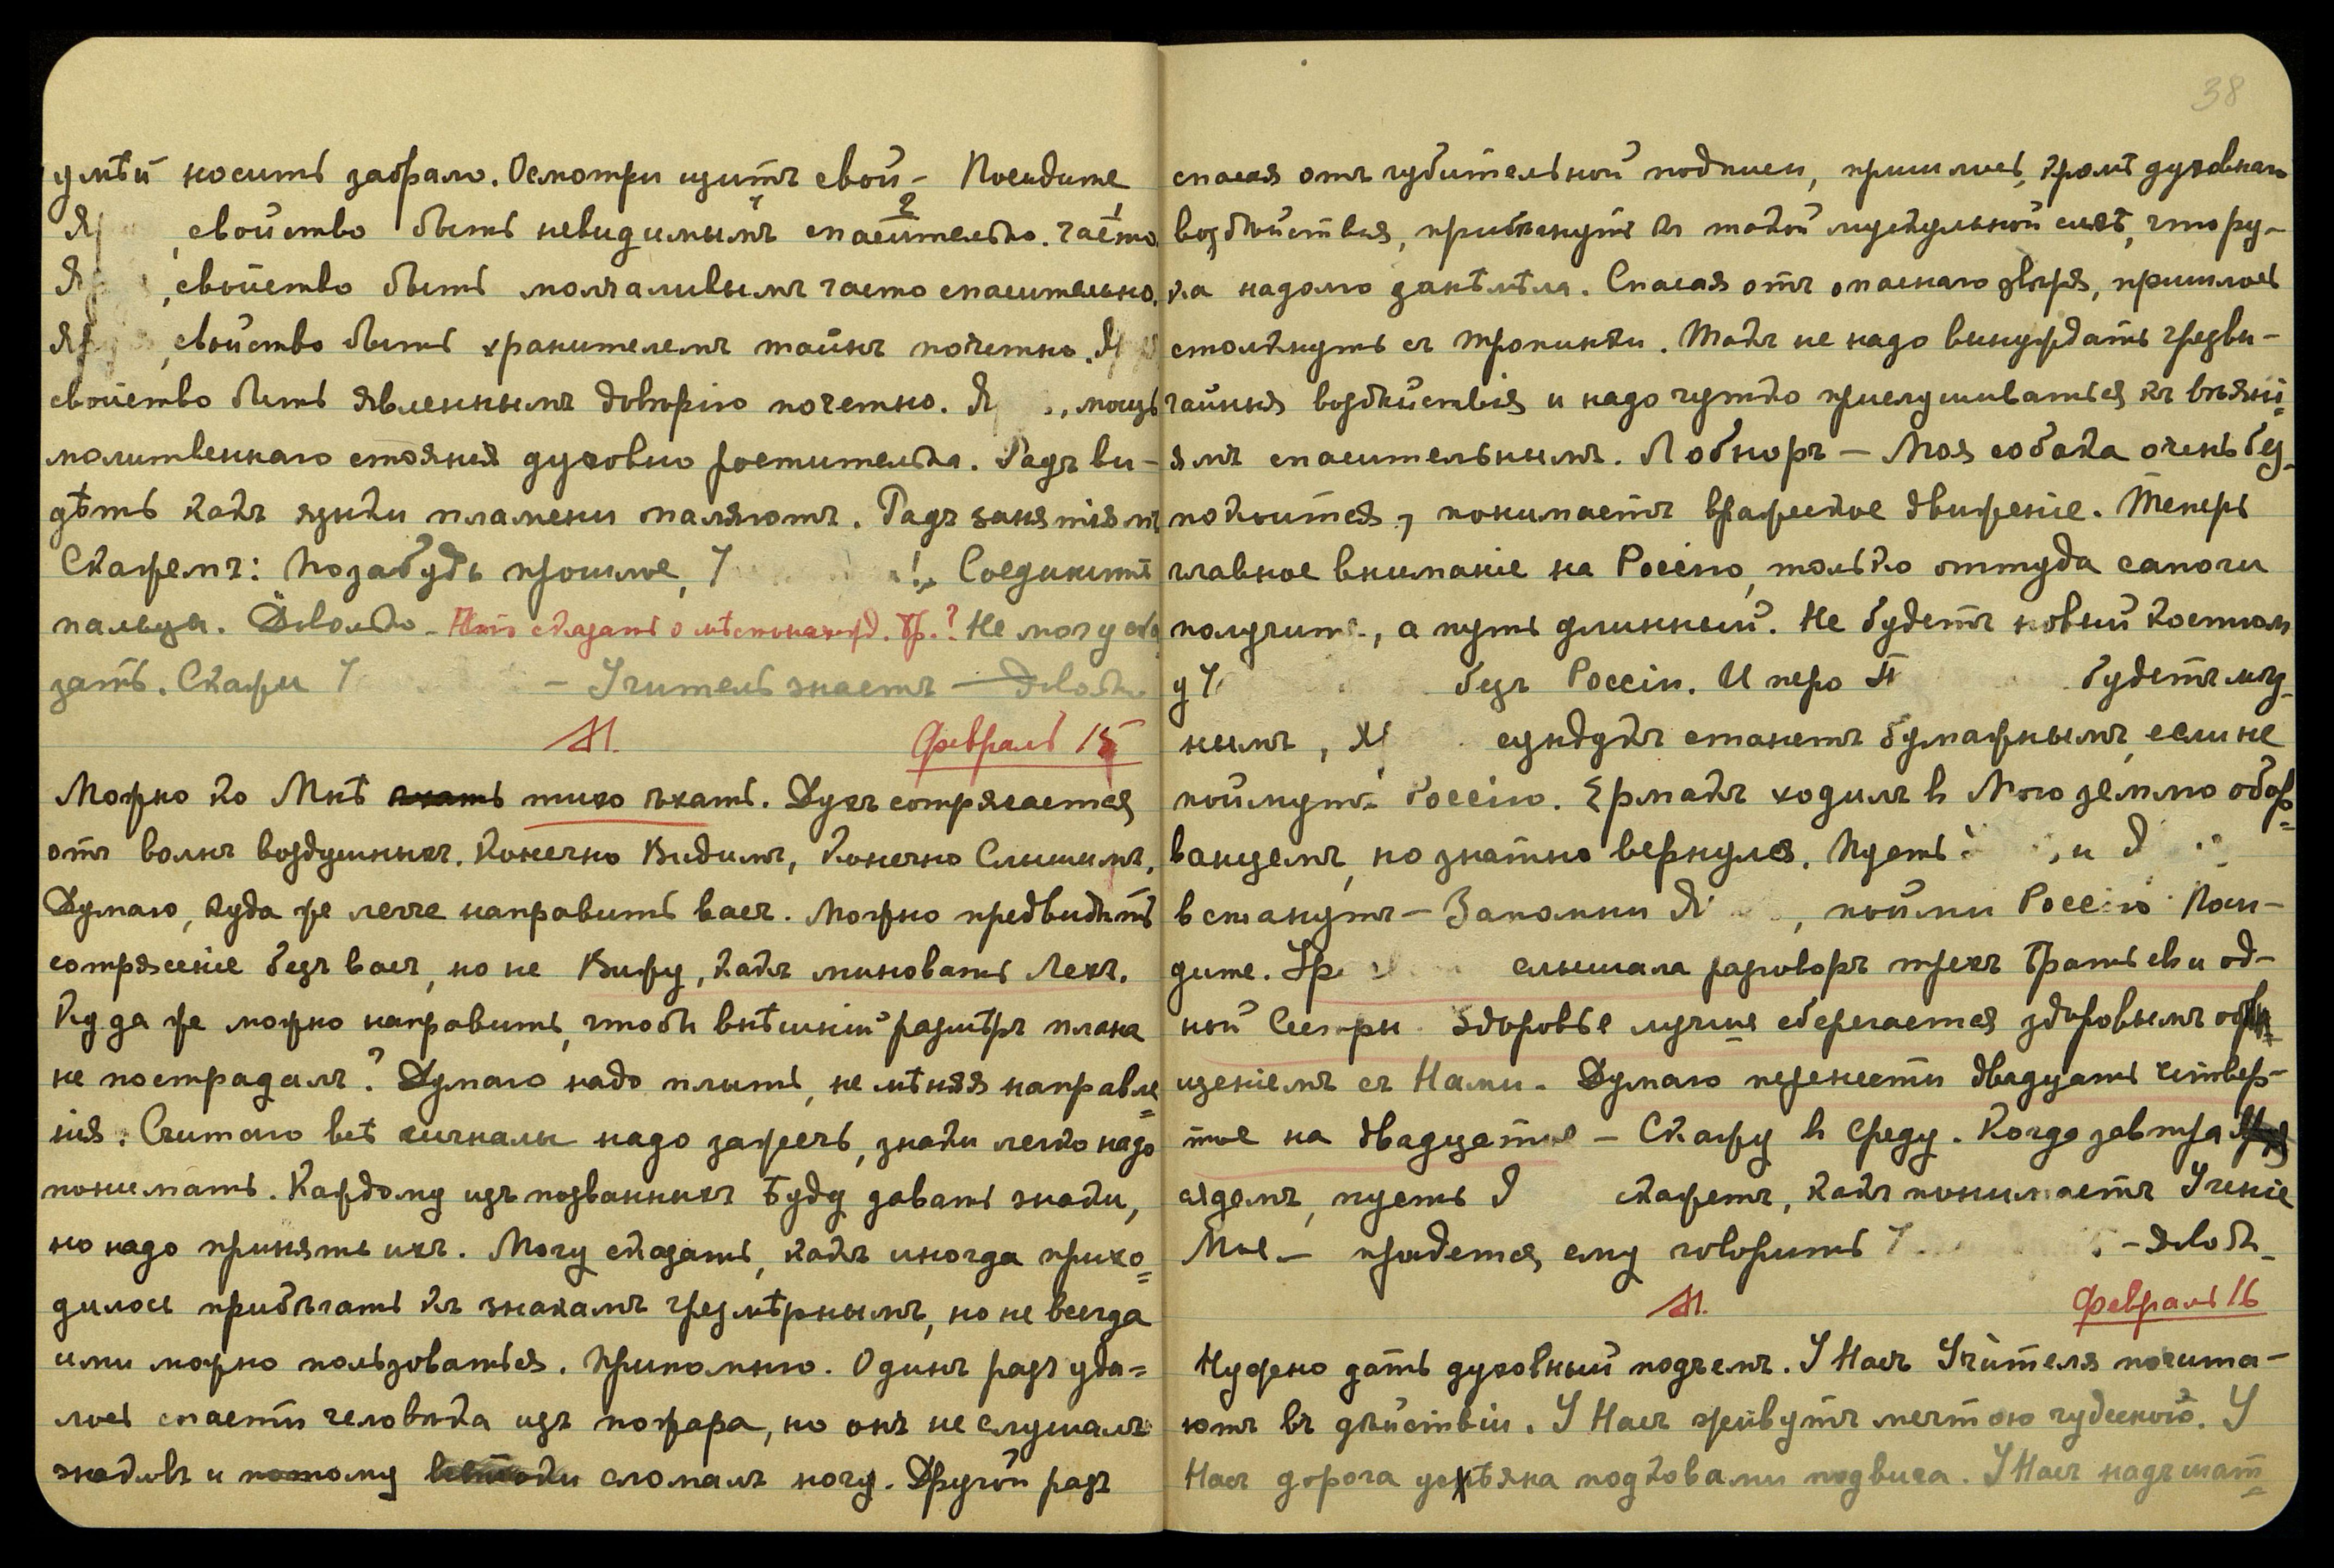 умѣй носить забрало. Осмотри щитъ свой – Посидите
Я свойство быть невидимымъ спасительно. часто
Я , свойство быть молчаливымъ часто спасительно.
Я , свойство быть хранителемъ тайнъ почетно. Я
свойство быть явленнымъ довѣрію почетно. Я , мощь
молитвеннаго стоянія духовно ростительна. Радъ ви-
дѣть какъ языки пламени паляютъ. Радъ занятіямъ
Скажемъ: Позабудь прошлое, ! Соедините
пальцы. Довольно – Не могу ска
зать. Скажи – Учитель знаетъ – Довольно
М. Февраль 15
Можно ко Мнѣ тихо ѣхать. Духъ сотрясается
отъ волнъ воздушныхъ. Конечно Видимъ, Конечно Слышимъ.
Думаю, куда же легче направить васъ. Можно предвидѣть
сотрясеніе безъ васъ, но не Вижу, какъ миновать Лехъ.
Куда же можно направить, чтобы внѣшній размѣръ плана
не пострадалъ? Думаю надо плыть, не мѣняя направле=
нія. Считаю всѣ сигналы надо зажечь, знаки легко надо
понимать. Каждому изъ позванныхъ Буду давать знаки,
но надо принять ихъ. Могу сказать, какъ иногда прихо=
дилось прибѣгать къ знакамъ чрезмѣрнымъ, но не всегда
ими можно пользоваться. Припомню. Одинъ разъ уда=
лось спасти человѣка изъ пожара, но онъ не слушалъ
знаковъ и потому сломалъ ногу. Другой разъ
38
спасая отъ губительной подписи, пришлось, кромѣ духовнаго
воздѣйствія, прибѣгнуть къ такой мускульной силѣ, что ру-
ка надолго занѣмѣла. Спасая отъ опаснаго звѣря, пришлось
столкнуть съ тропинки. Такъ не надо вынуждать чрезвы-
чайныя воздѣйствія и надо чутко прислушиваться къ вѣяні=
ямъ спасительнымъ. Лобноръ – Моя собака очень без-
покоится, понимаетъ вражеское движеніе. Теперь
главное вниманіе на Россію, только оттуда сапоги
получите, а путь длинный. Не будетъ новый костюм
у безъ Россіи. И перо будетъ мут-
нымъ, сундукъ станетъ бумажнымъ, если не
поймутъ Россію. Ермакъ ходилъ в Мою землю обор=
ванцемъ, но знатно вернулся. Пусть , и
встанутъ – Запомни Я , пойми Россію Поси-
дите. Ур слышала разговоръ трехъ Братьевъ и од-
ной Сестры. Здоровье лучше сберегается здоровымъ общ=
щеніемъ съ Нами – Думаю перенести двадцать четвер-
тое на двадцатое – Скажу в Среду. Когда завтра
сядемъ, пусть скажетъ, какъ понимаетъ Ученіе
Мое – придется ему говорить – Довольно –
М. Февраль 16
Нужно дать духовный подъемъ. У Насъ Учителя почита-
ютъ въ дѣйствіи. У Насъ живутъ мечтою чудесной. У
Насъ дорога усѣяна подковами подвига. У Насъ надъ шат=